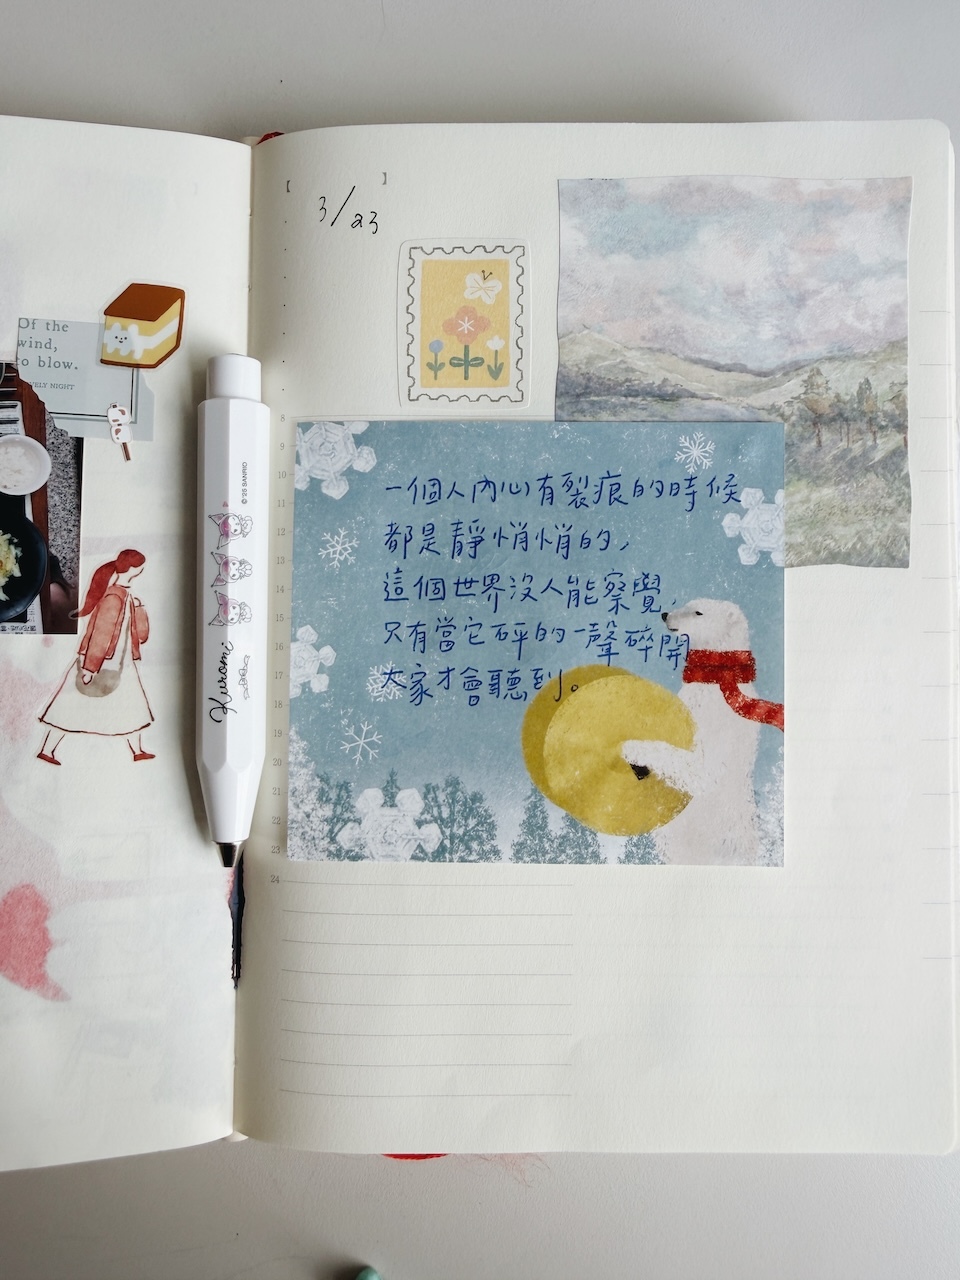 Of the
wind,
to blow.
VELY NIGHT
©'25 SANRIO
Kuromi
3/23
8
9
10
11
12
13
14
15
16
17
18
19
20
21
22
23
24
一個人內心有裂痕的時候
都是靜悄悄的,
這個世界沒人能察覺,
只有當它砰的一聲碎開
大家才會聽到。